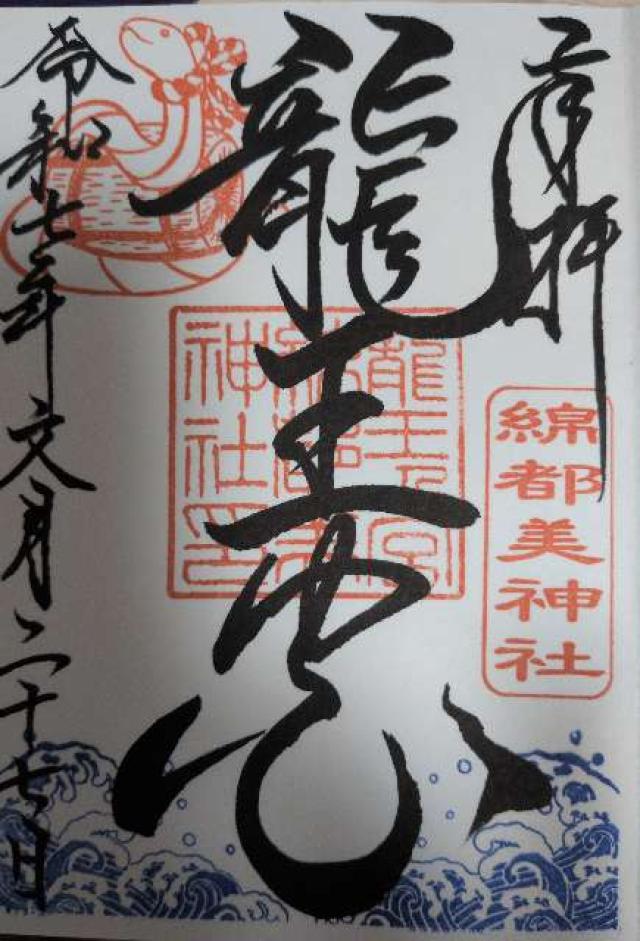 奉拝
綿都美神社
龍王
龍王宮
綿都美
神社印
令和七年文月二十七日